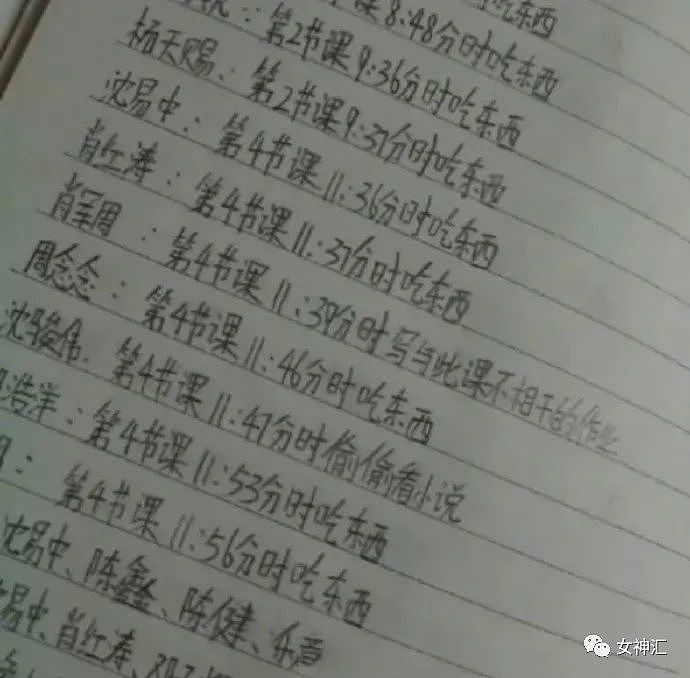 吃东西
课 8:48分时吃东西
: 第2节课 9:36分时吃东西
杨天赐: 第2节课 9:37分时吃东西
沈易中: 第4节课 11:36分时吃东西
肖红涛: 第4节课 11:37分时吃东西
肖军周: 第4节课 11:39分时写与此课不相干的作业
周念念: 第4节课 11:46分时吃东西
沈骏伟. 第4节课 11:47分时偷偷看小说
浩洋: 第4节课 11:53分时吃东西
: 第4节课 11:56分时吃东西
沈易中、陈鑫、陈健、乐晋
易中、肖红涛、
女神汇